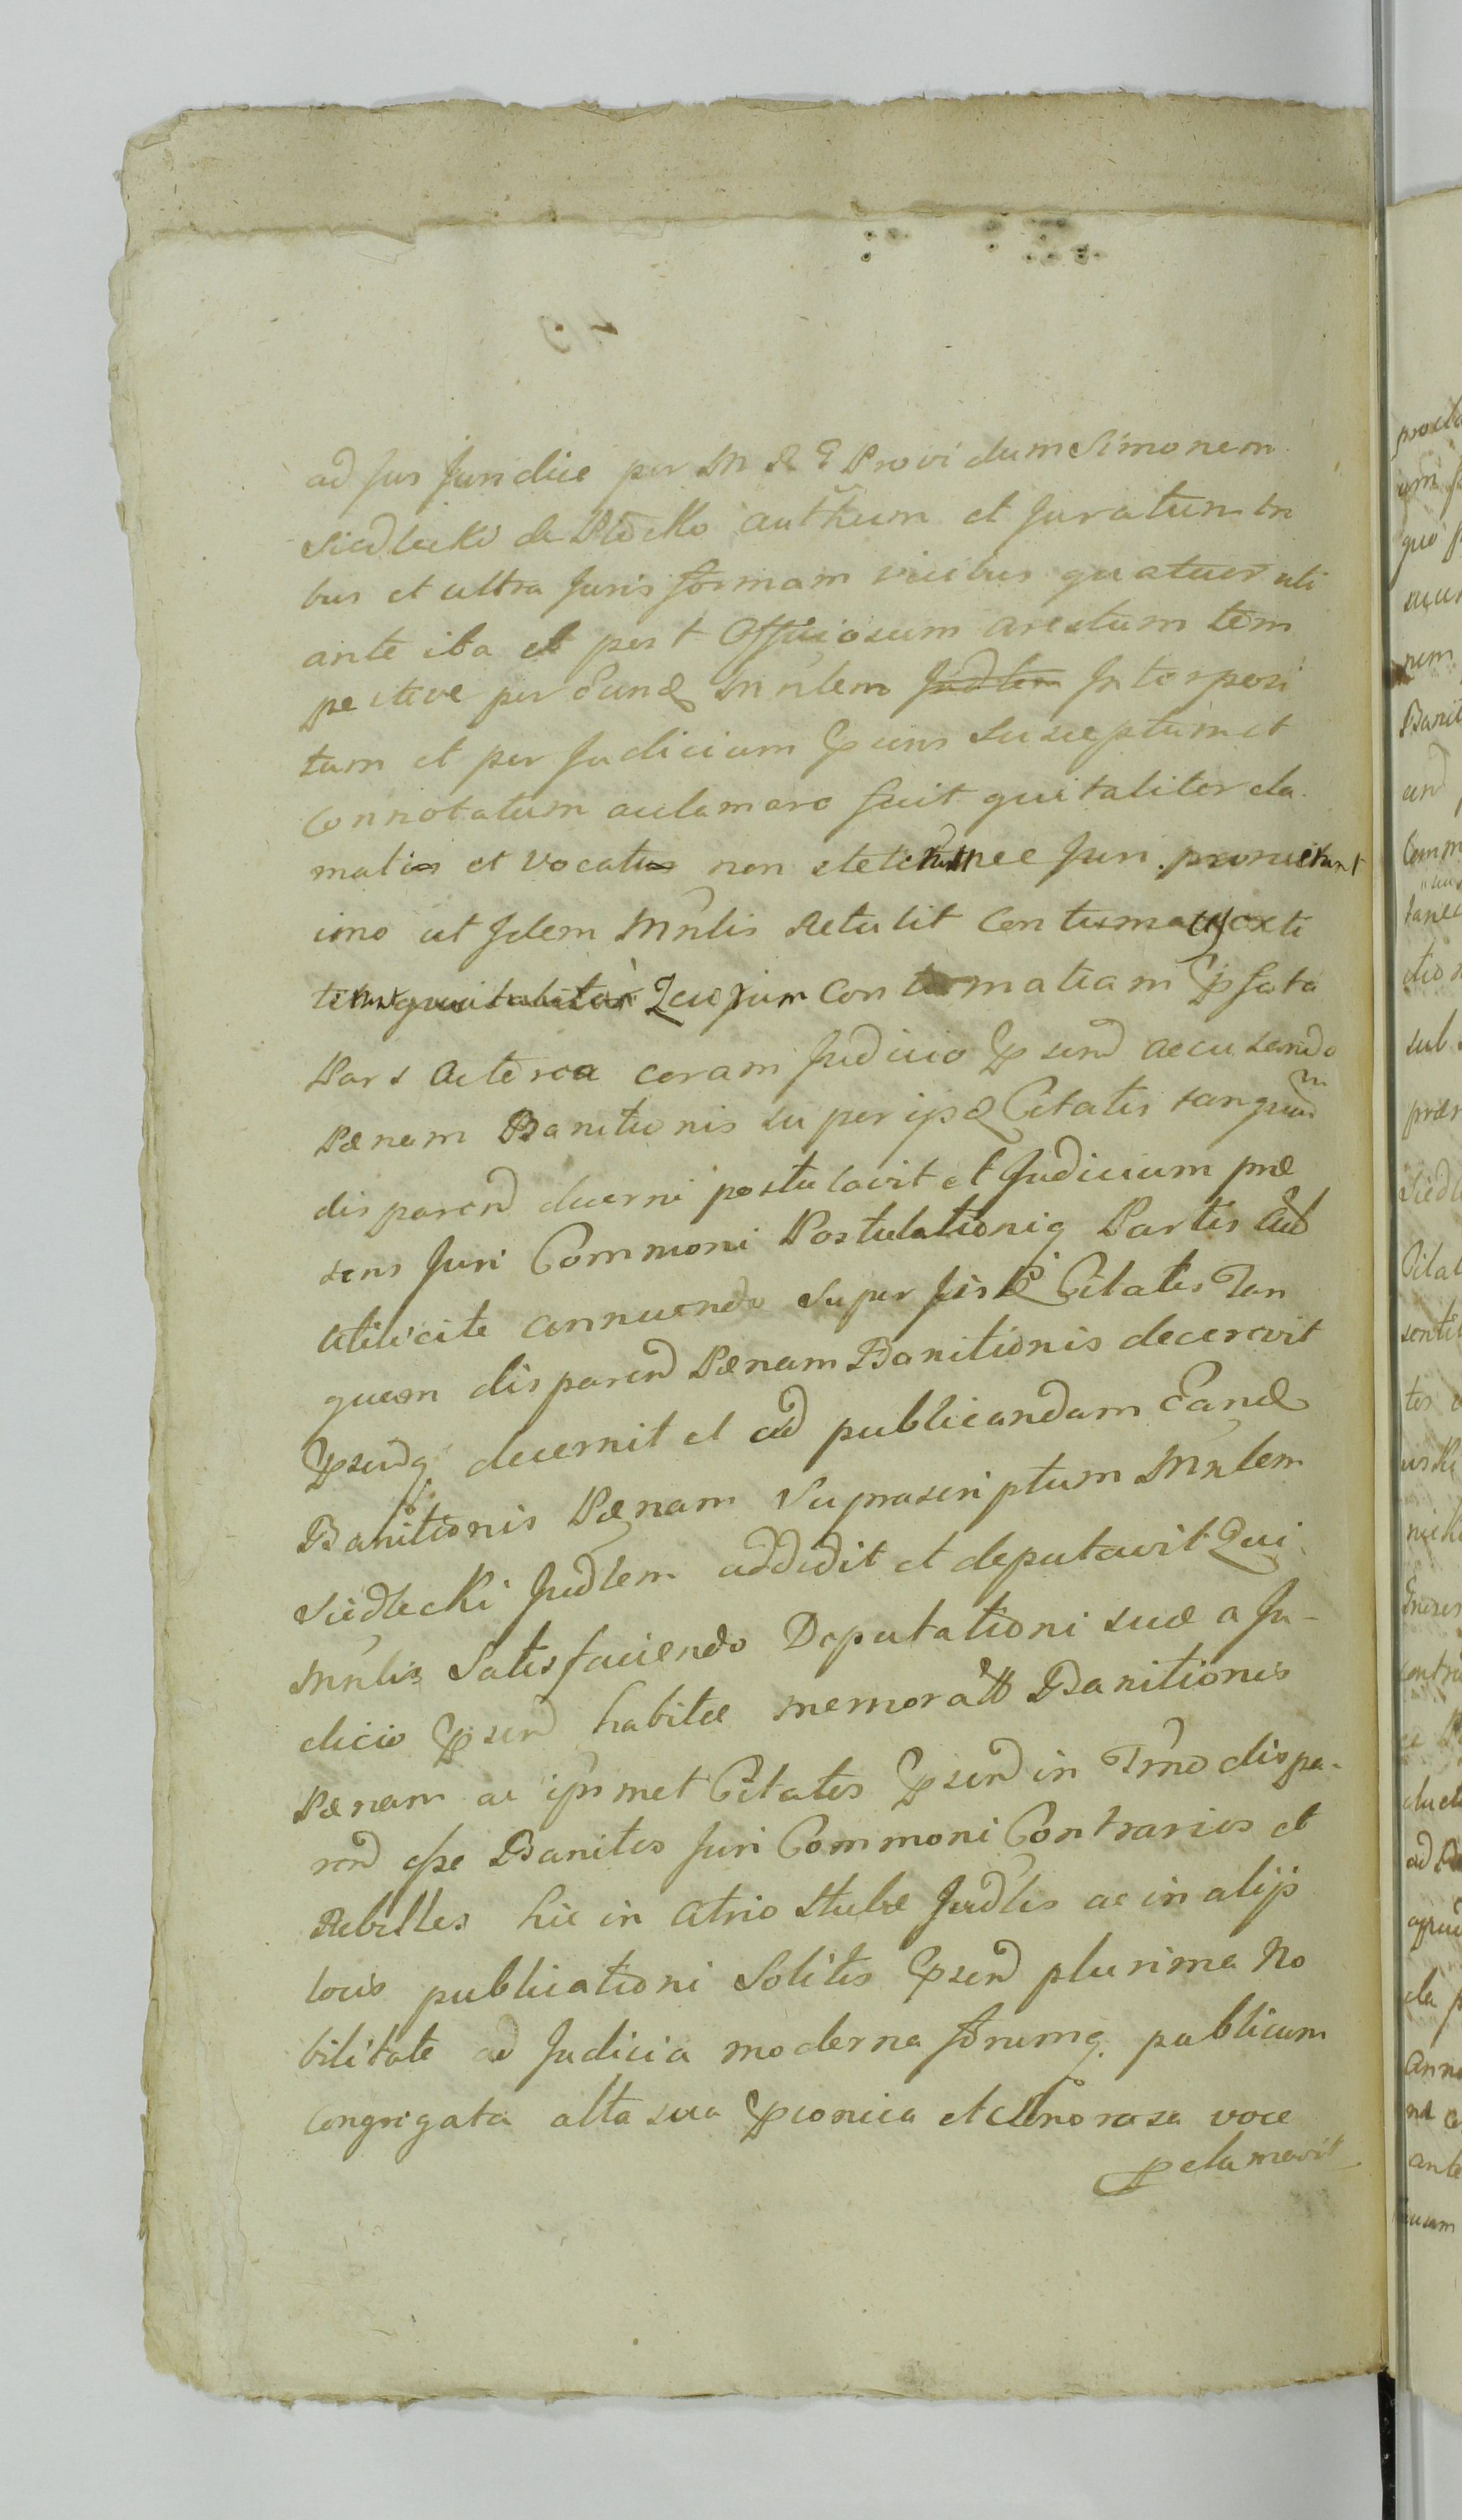 ad Jus Juridice per M R G Providum Simonem
Siedlecki de Plocko authum et Juratum tri
bus et ultra Juris formam vicibus quatuor uti
ante ita et post Officiosum arestum tem
pestive per Eund Mnlem Judlem Interposi
tum et per Judicium psens Susceptum et
Connotatum aclamare fecit qui taliter cla
mati et vocati non steterunt nec Juri paruerunt
imo ut Idem Mnlis Retulit Contumaces exti
terunt Quorum Contumatiam psata
Pars Actorea coram Judicio psend accusando
Pænam Banitionis super ipse Citatis tanquam
disparend decerni postulavit et Judicium præ
sens Juri Commoni Postulationiq Partis
annuendo Super Citatis Tan
quam disparend Pænam Banitionis decerevit
psendq decernit et ad publicandam Eand
Banitionis Pænam Suprascriptum Mnlem
Siedlecki Judlem addidit et deputavit Qui
Mnlis Satisfaciendo Deputationi suæ a Ju-
dicio psend habitæ memorat Banitionis
Pænam ac ipsmet Citatos psend in Tmo dispa-
rend esse Banitos Juri Commoni Contrarios et
Rebelles hic in atrio Stubæ Judlis ac in alijs
locis publicationi Solitis psend plurima No
bilitate ad Judicia moderna forumq. publicum
Congregata alta sua pconica et Clonorosa voce
pclamavit